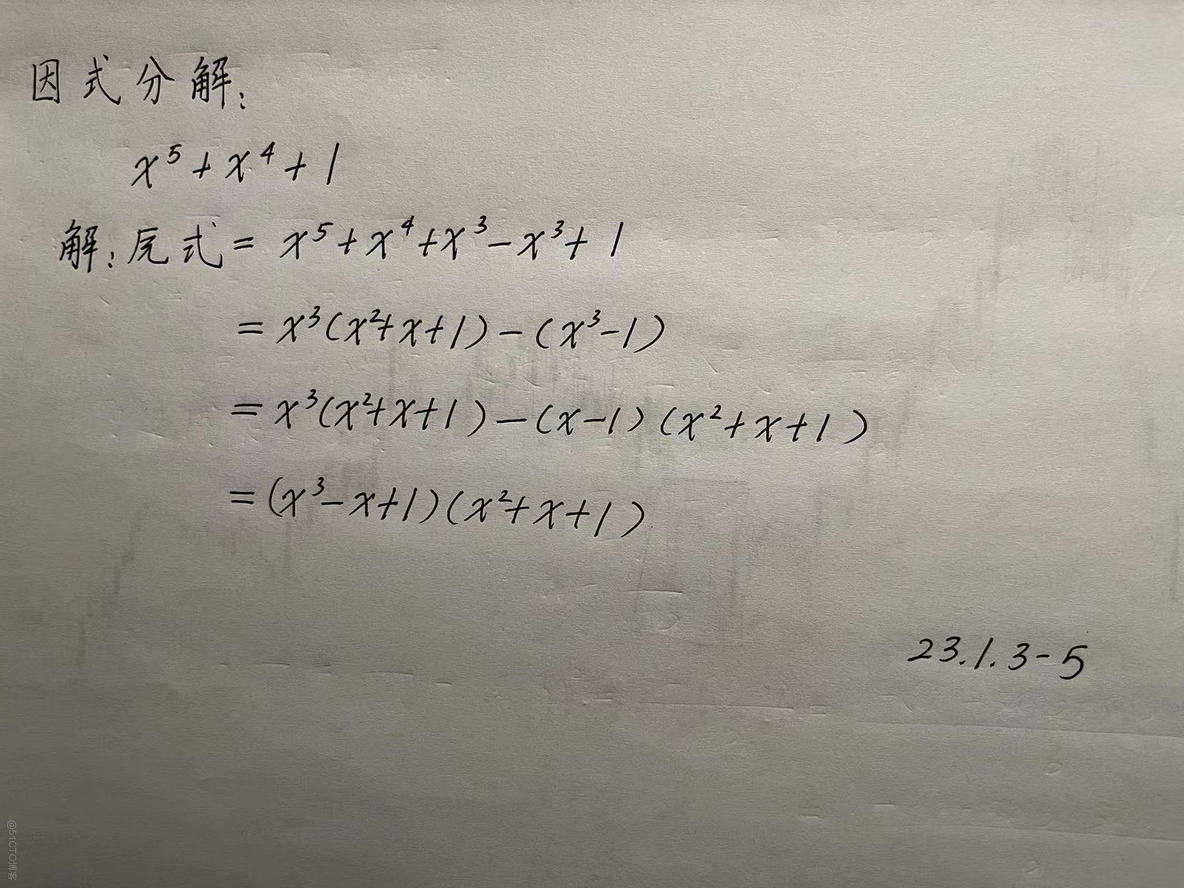 因式分解:
x⁵+x⁴+1
解:原式= x⁵+x⁴+x³-x³+1
= x³(x²+x+1)-(x³-1)
= x³(x²+x+1)-(x-1)(x²+x+1)
=(x³-x+1)(x²+x+1)
23.1.3-5
@51CTO博客